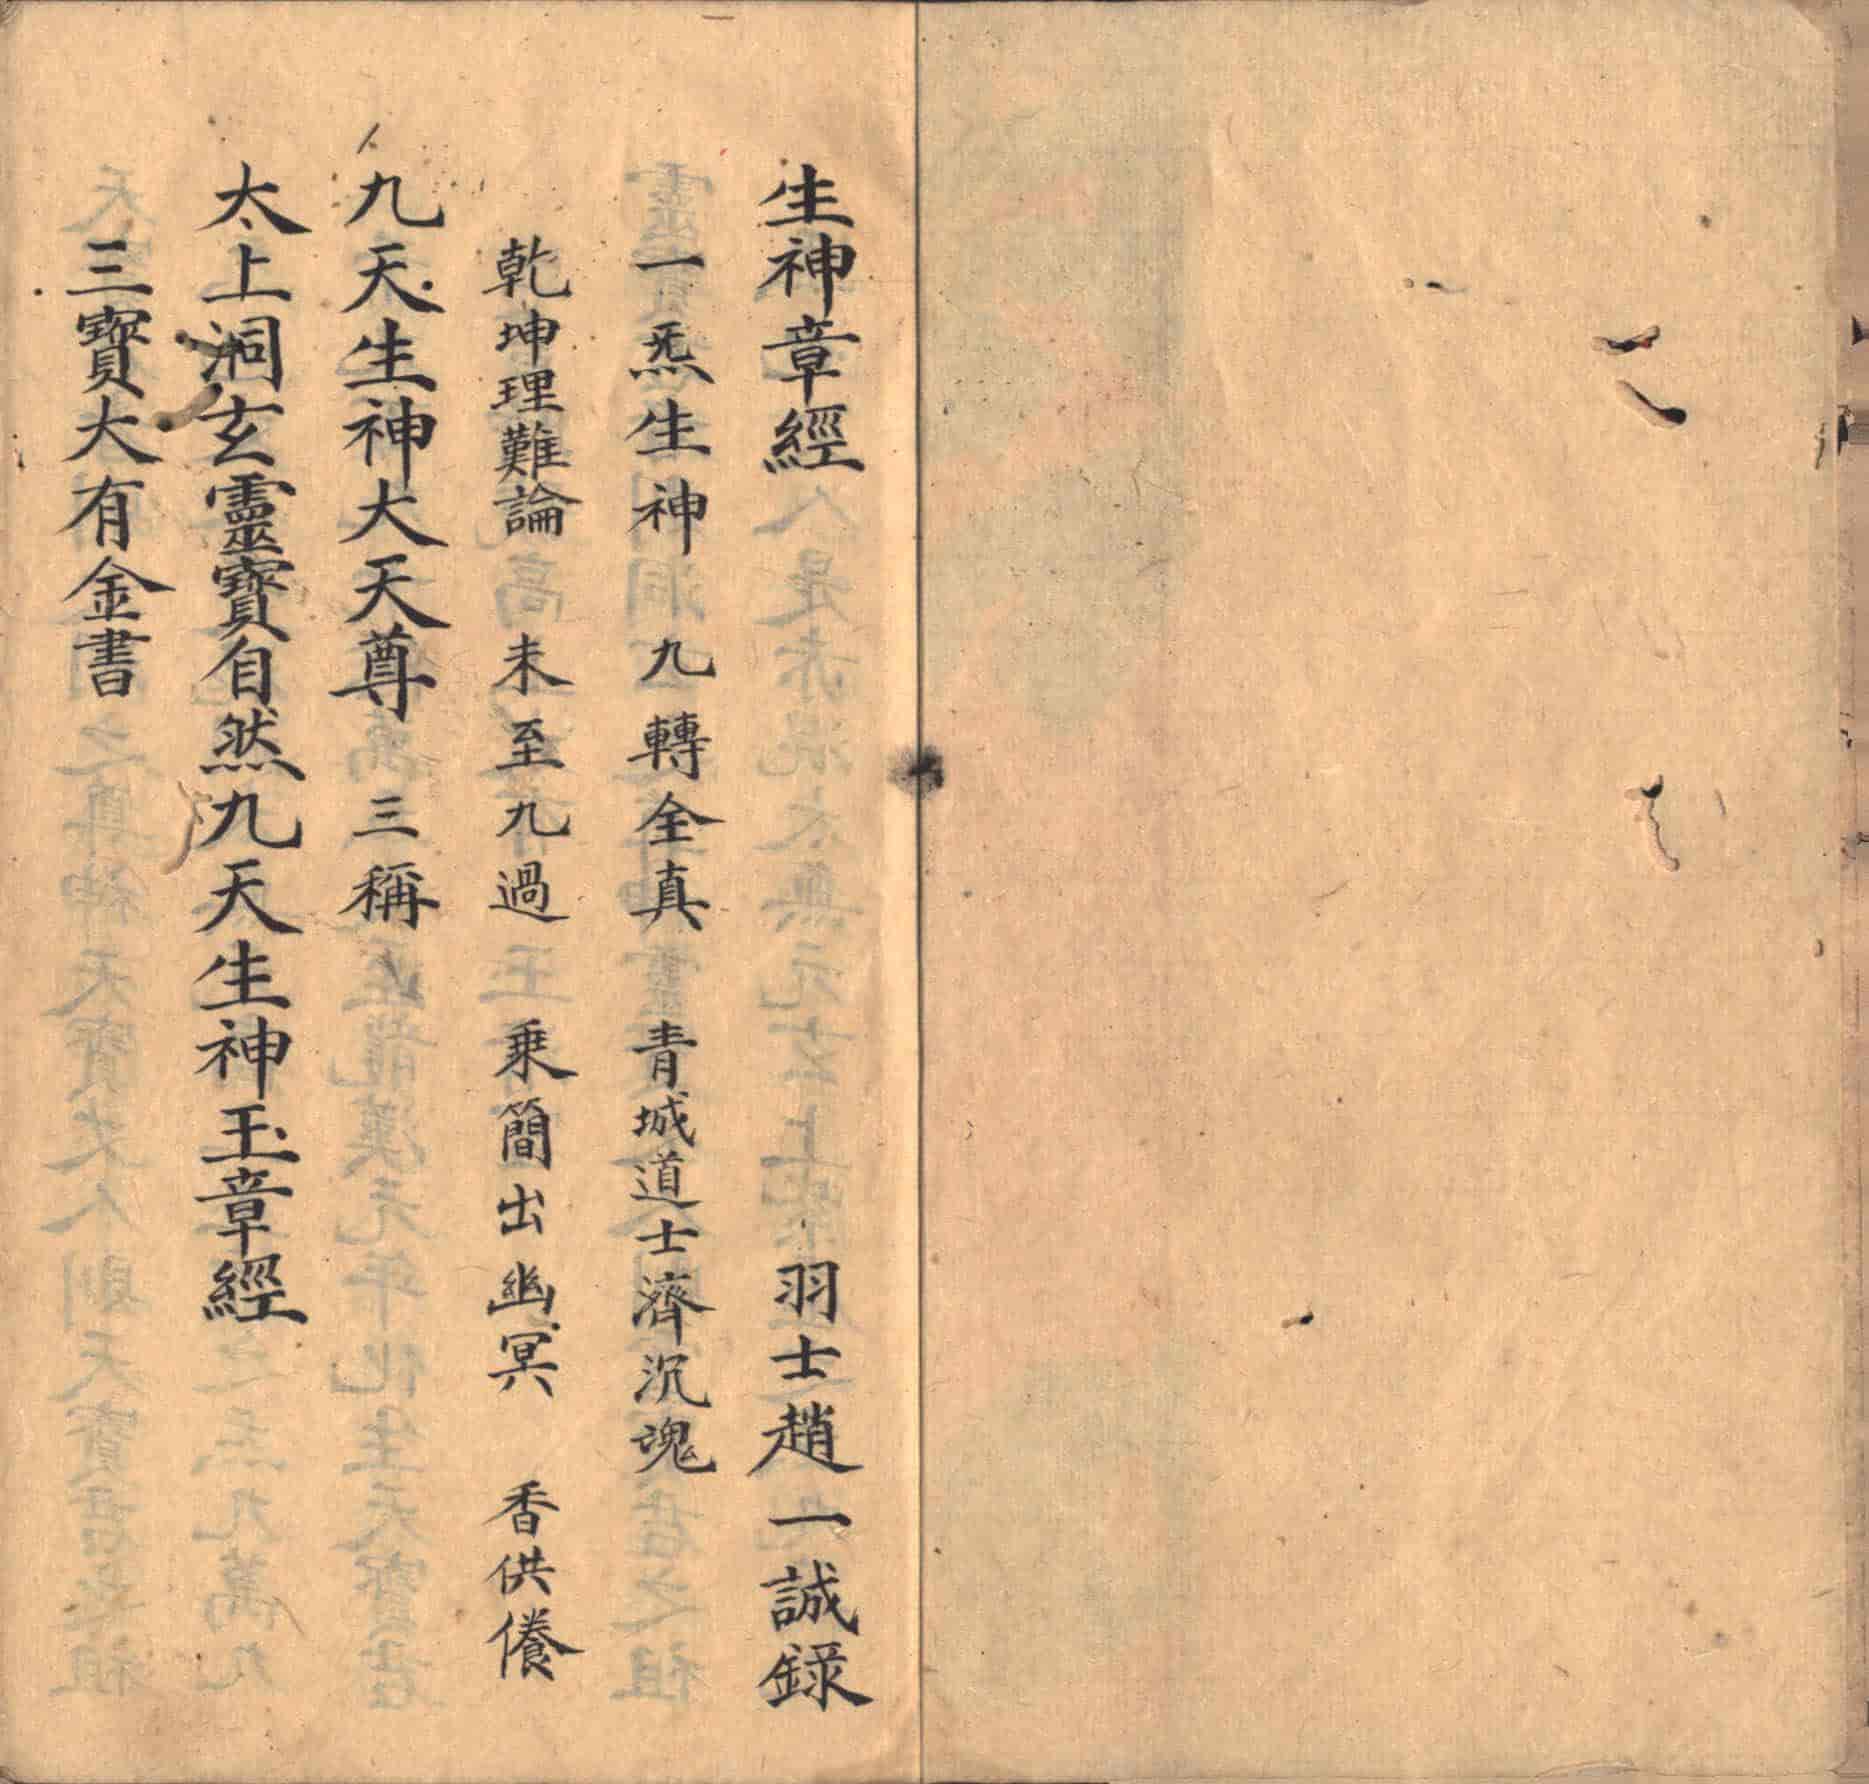 生神章經　羽士趙一誠録
一炁生神　九轉全真　青城道士濟沉魂
乾坤理難論　未至九過　乗簡出幽冥　香供養
九天生神大天尊　三稱
太上洞玄靈寶自然九天生神玉章經
三寶大有金書